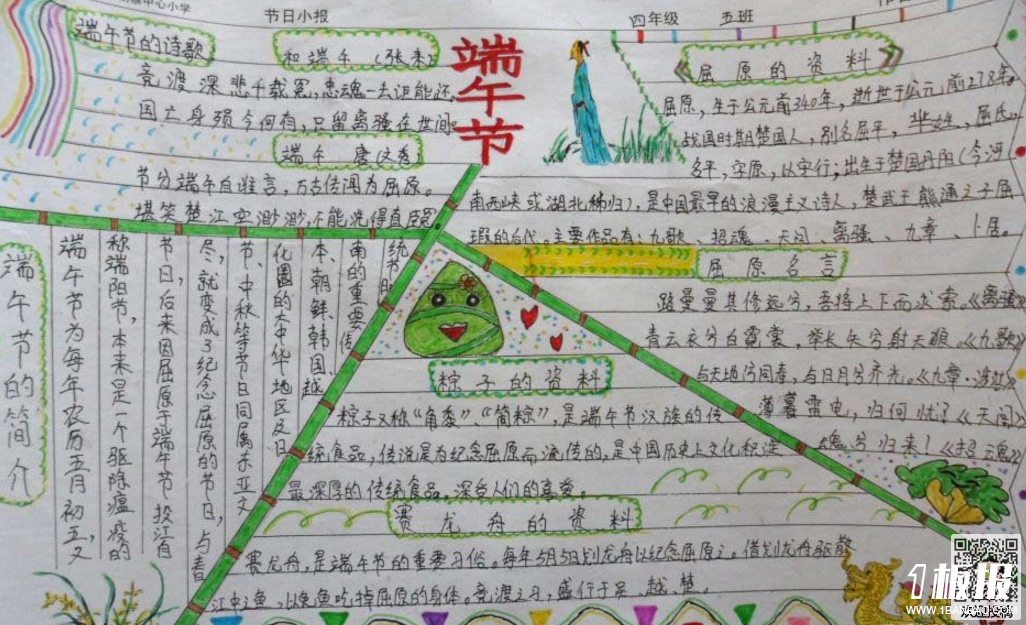 中心小学
节日小报
四年级
五班
端午节
端午节的诗歌
和端午(张耒)
竞渡深悲千载冤,忠魂一去讵能还。
国亡身殒今何有,只留离骚在世间。
端午 唐(文秀)
节分端午自谁言,万古传闻为屈原。
堪笑楚江空渺渺,不能洗得直臣冤
《屈原的资料》
屈原,生于公元前340年,逝世于公元前278年。
战国时期楚国人,别名屈平,芈姓,屈氏。
名平,字原,以字行;出生于楚国丹阳(今河
南西峡或湖北秭归),是中国最早的浪漫主义诗人,楚武王熊通之子屈
瑕的后代。主要作品有:九歌、招魂、天问、离骚、九章、卜居。
屈原名言
路曼曼其修远兮,吾将上下而求索。《离骚》
青云衣兮白霓裳,举长矢兮射天狼。《九歌》
与天地兮同寿,与日月兮齐光。《九章·涉江》
薄暮雷电,归何忧?《天问》
魂兮归来!《招魂》
端午节的简介
端午节为每年农历五月初五,又
称端阳节,本来是一个驱除瘟疫的
节日,后来因屈原于端午节投江自
尽,就变成了纪念屈原的节日,与春
节、中秋等节日同属东亚文
化圈的大中华地区及日
本、朝鲜、韩国、越
南的重要传
统节
粽子的资料
粽子又称“角黍”、“筒粽”,是端午节汉族的传
统食品,传说是为纪念屈原而流传的,是中国历史上文化积淀
最深厚的传统食品。深受人们的喜爱。
赛龙舟的资料
赛龙舟,是端午节的重要习俗。每年5月5日划龙舟以纪念屈原之。借划龙舟驱散
江中之鱼,以免鱼吃掉屈原的身体。竞渡之习,盛行于吴、越、楚。
1板报
WWW.1BANBAO.COM